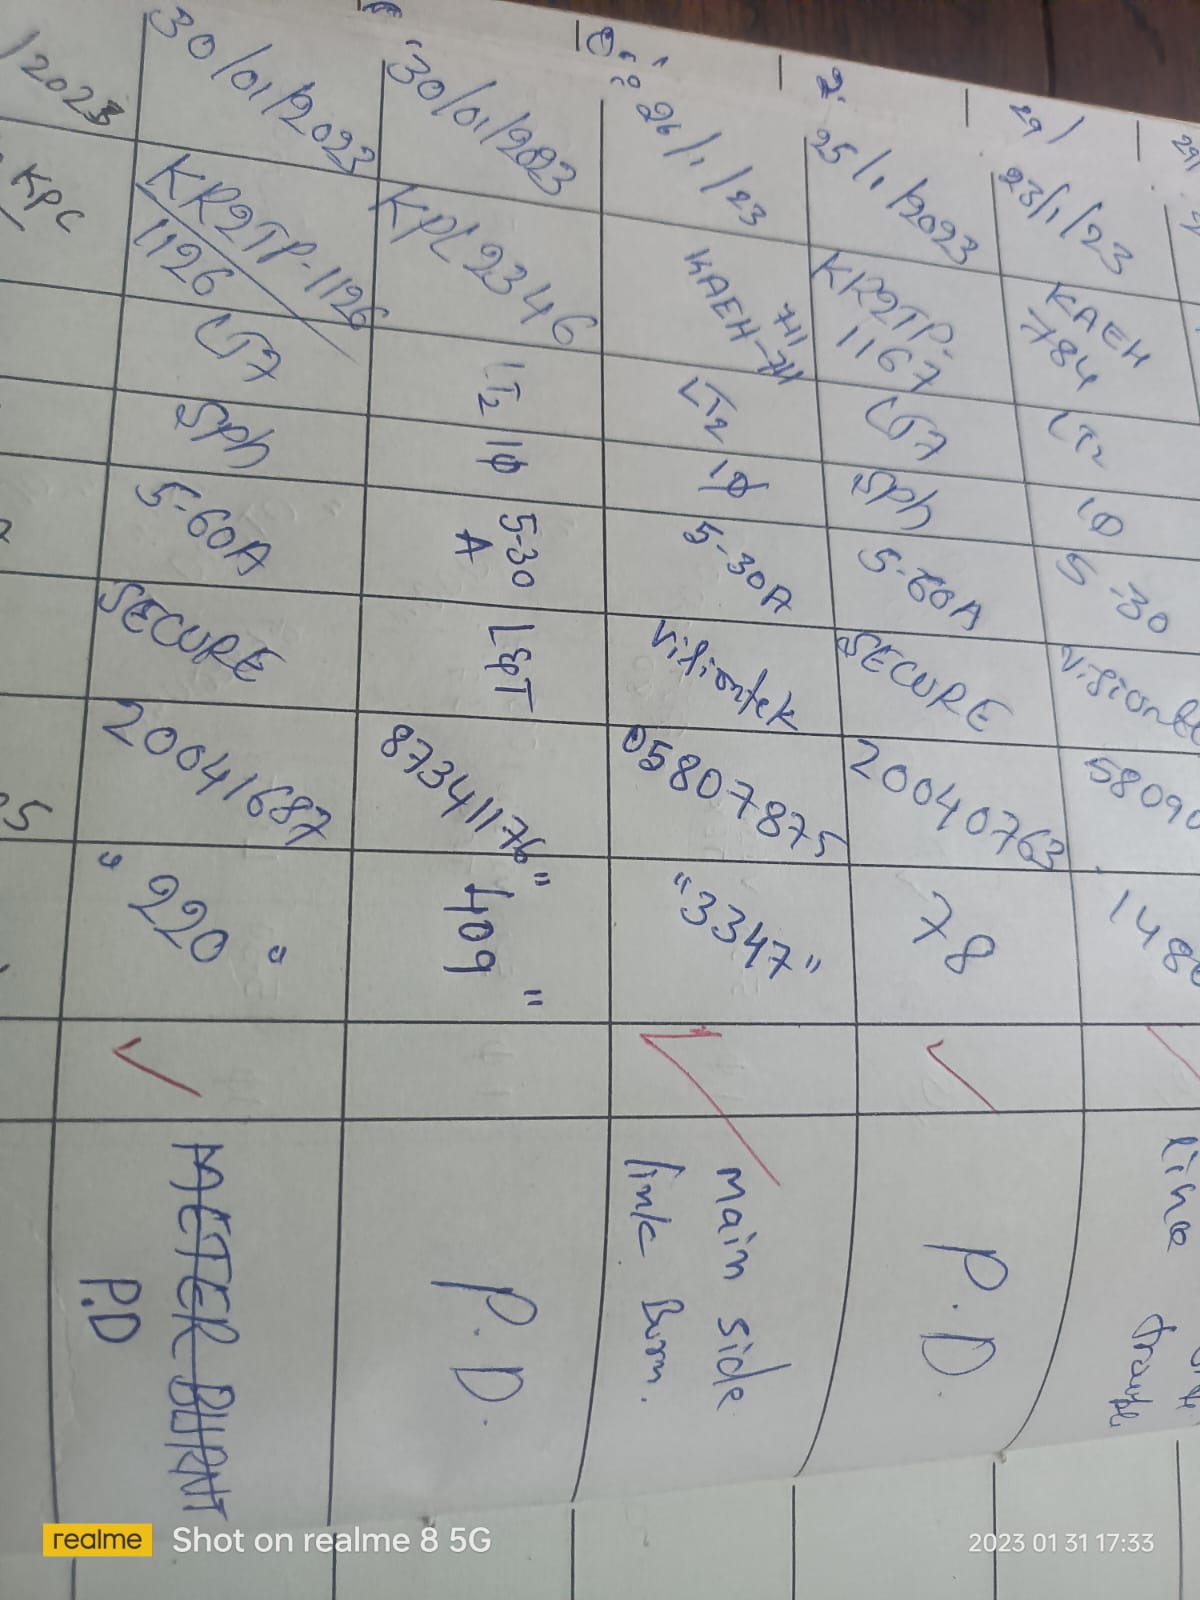 29/
23/1/23 KAEH 784 LT2 1Φ 5-30
line
25/1/2023 KR2TP-1167 LT7 SPh 5-60A SECURE 20040763 78 P.D.
26/1/23 KAEH-711 LT2 1Φ 5-30A Visiontek 05807875 "3347" main side
link Burn.
30/01/2023 KPL2346 LT2 1Φ 5-30 A L&T 87341176 "409" P.D.
30/01/2023 KR2TP-1126 LT7 SPh 5-60A SECURE 20041687 "220" METER BURNT
1126 P.D
/2023 KPL
realme Shot on realme 8 5G
2023 01 31 17:33